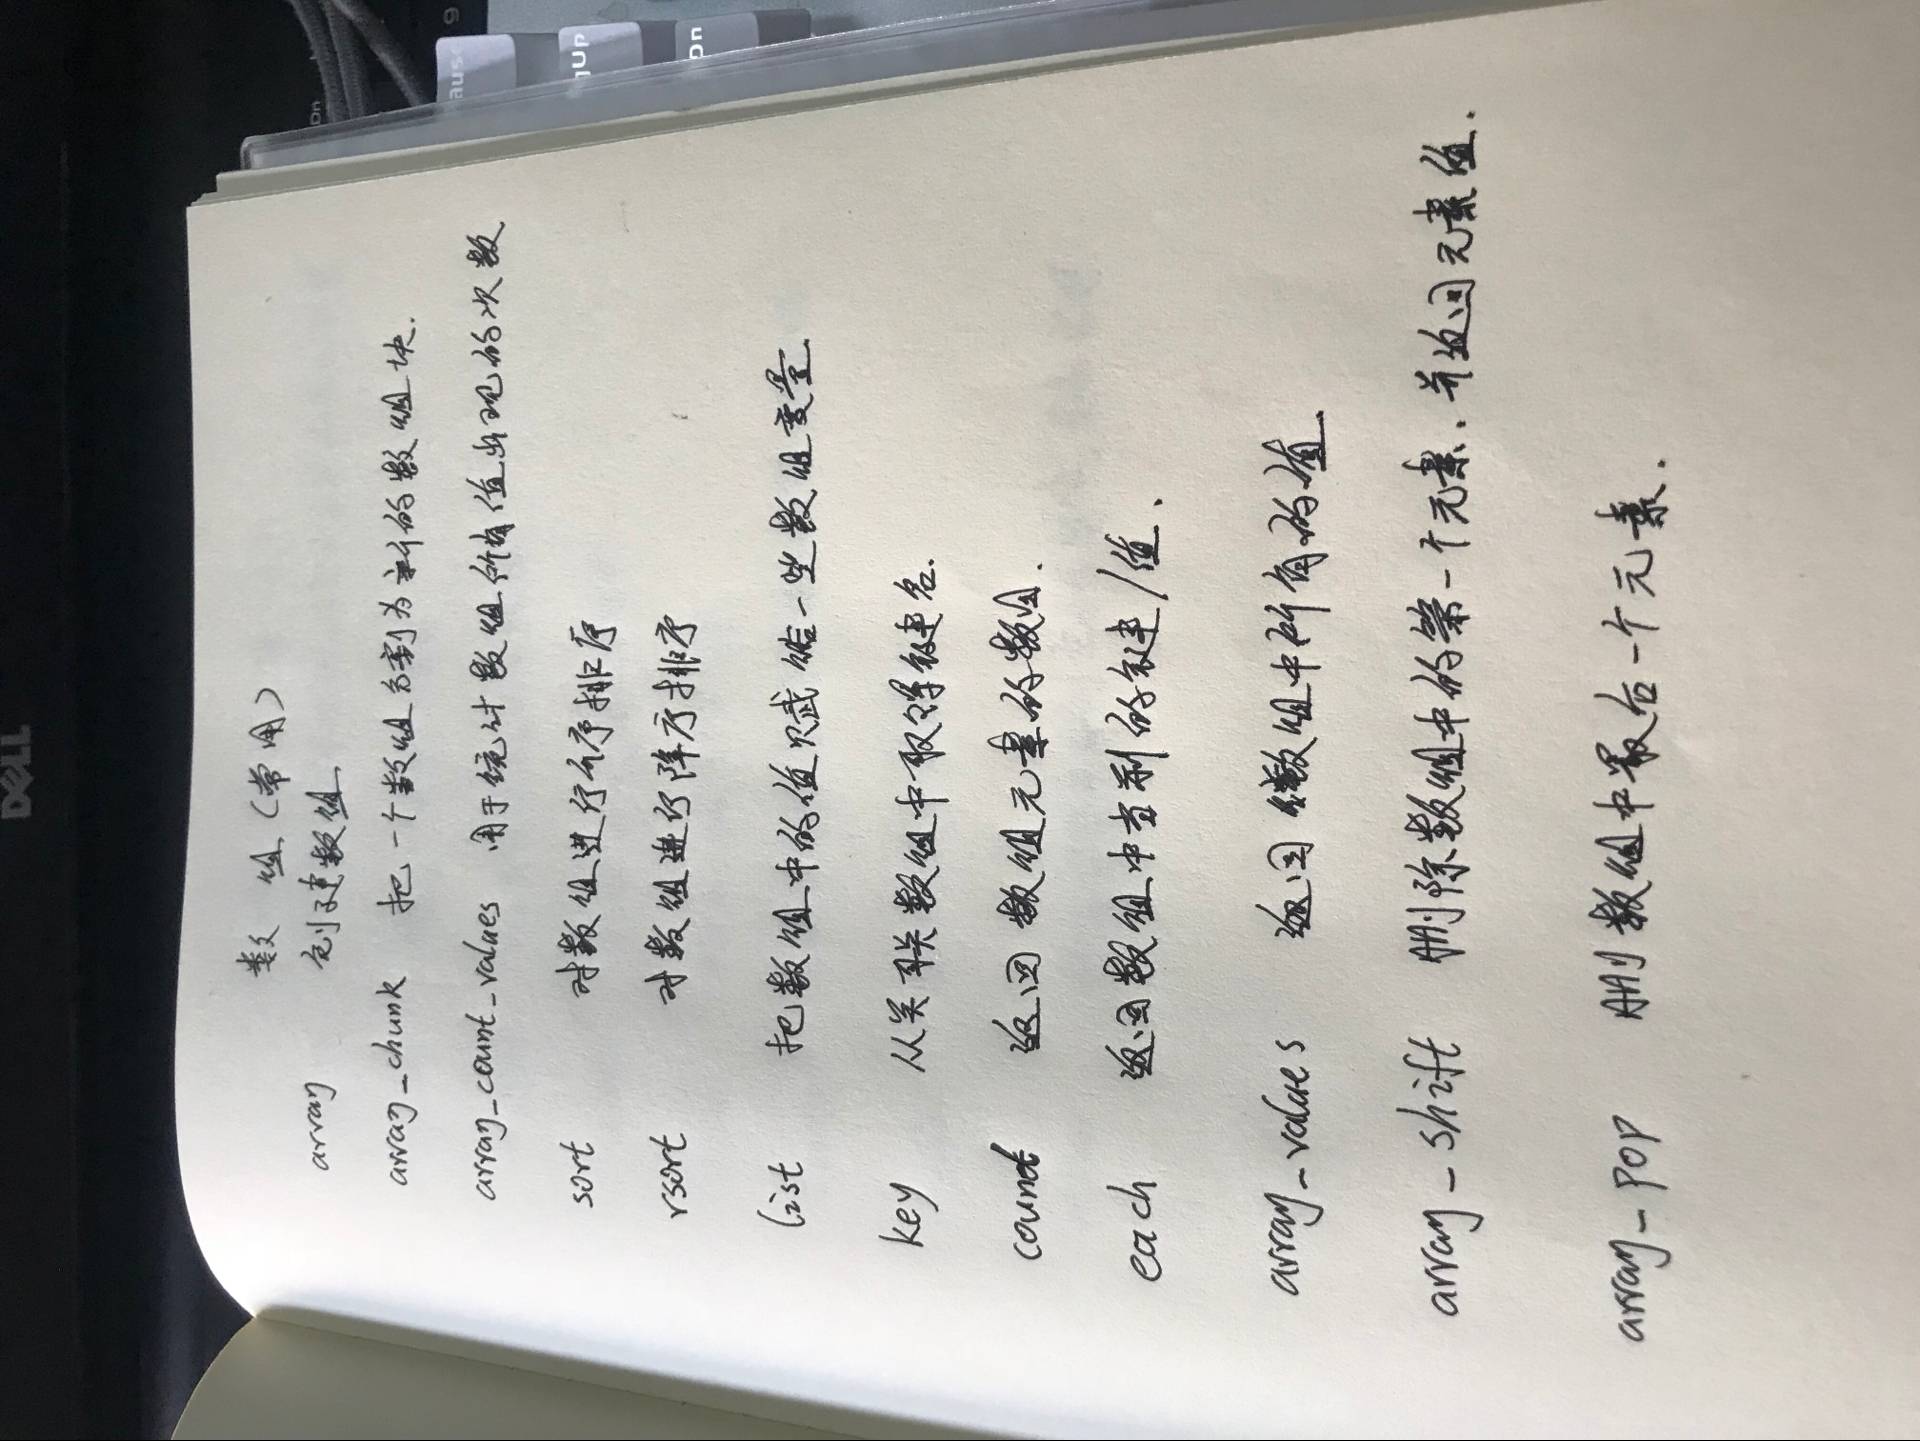 数组（常用）
array 创建数组
array_chunk 把一个数组分割为新的数组块.
array_count_values 用于统计数组所有值出现的次数
sort 对数组进行升序排序
rsort 对数组进行降序排序
list 把数组中的值赋给一些数组变量.
key 从关联数组中取得键名.
count 返回数组元素的数组.
each 返回数组中当前的键/值.
array_values 返回数组中所有的值
array_shift 删除数组中的第一个元素.并返回元素值.
array_pop 删数组中最后一个元素.
DELL
gUp
Dn
ause
Dn
9